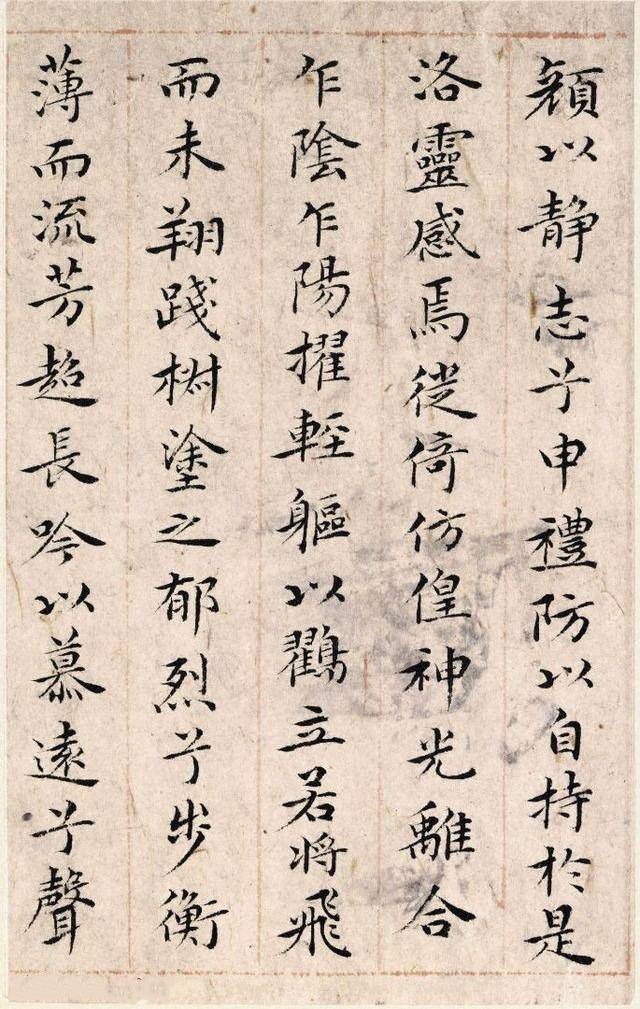 顔以静志兮申禮防以自持於是
洛靈感焉徙倚仿偟神光離合
乍陰乍陽擢輕軀以鸖立若将飛
而未翔踐椒塗之郁烈兮步衡
薄而流芳超長吟以慕遠兮聲